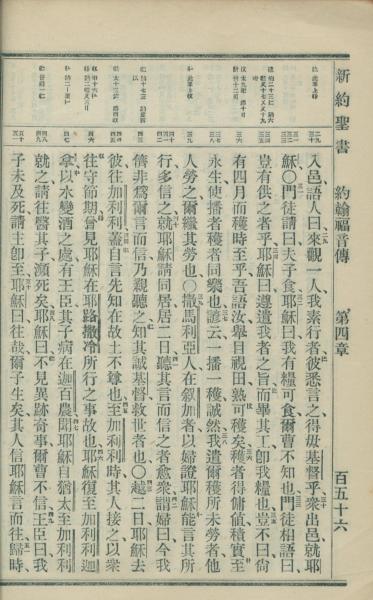 新約聖書 約翰福音傳 第四章 百五十六
入邑語人曰來觀一人我素行者彼悉言之得毋基督乎衆出邑就耶
穌〇門徒請曰夫子食耶穌曰我有糧可食爾曹不知也門徒相語曰
豈有供之者乎耶穌曰遵遣我者之旨而畢其工卽我糧也豈不曰尙
有四月而穫時至乎吾語汝舉目視田熟可穫矣穫者得傭値積實至
永生使播者穫者同樂也諺云一播一穫誠然我遣爾穫所未勞者他
人勞之爾繼其勞也〇撒馬利亞人在叙加者以婦證耶穌能言其所
行多信之就耶穌請同居居二日聽其言而信之者愈衆謂婦曰今我
儕非爲爾言而信乃親聽之知其誠基督救世者也〇越二日耶穌去
彼往加利利蓋自言先知在故土不尊也至加利利時其人接之以衆
往守節期嘗見耶穌在耶路撒冷所行之事故也耶穌復至加利利迦
拿以水變酒之處有王臣其子病在迦百農聞耶穌自猶太至加利利
就之請往醫其子瀕死矣耶穌曰不見異跡奇事爾曹不信王臣曰我
子未及死請主卽至耶穌曰往哉爾子生矣其人信耶穌言而往歸時